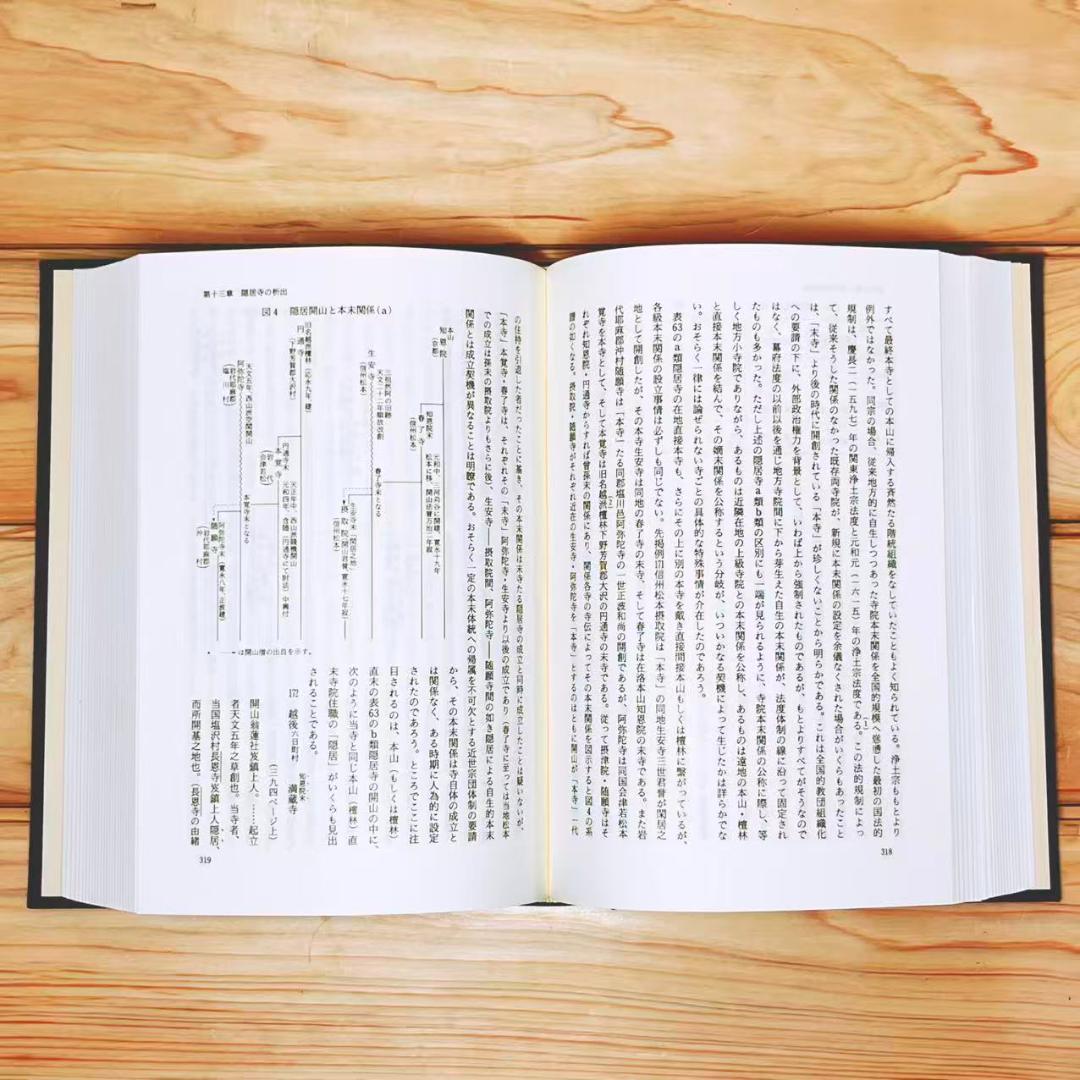 すべて最終本寺としての本山に帰入する斉然たる階統組織をなしていたこともよく知られている。浄土宗ももとより
例外ではなかった。同宗の場合、従来地方的に自生しつつあった寺院本末関係を全国的規模へ
規制は、慶長二(一五九七)年の関東浄土宗法度と元和元(一六一五)年の浄土宗法度である。(1)この法的規制によっ
て、従来そうした関係のなかった既存両寺院が、新規に本末関係の設定を余儀なくされた場合がいくらもあったこと
は、「末寺」より後の時代に開創されている「本寺」が珍しくないことから明らかである。これは全国的教団組織化
への要請の下に、外部政治権力を背景として、いわば上から強制されたものであるが、もとよりすべてがそうなので
はなく、幕府法度の以前以後を通じ地方寺院間に下から芽生えた自生の本末関係が、法度体制の線に沿って固定され
たものも多かった。ただし上述の隠居寺a類b類の区別にも一端が見られるように、寺院本末関係の公称に際し、等
しく地方小寺院でありながら、あるものは近隣在地の上級寺院との本末関係を公称し、あるものは遠地の本山・檀林
と直接本末関係を結んで、その嫡末関係を公称するという分岐が、いついかなる契機によって生じたかは詳らかでな
い。おそらく一律には論ぜられない寺ごとの具体的な特殊事情が介在したのであろう。
表63のa類隠居寺の在地直接本寺も、さらにその上に別の本寺を戴き直接間接本山もしくは檀林に繋がっているが、
各級本末関係の設立事情は必ずしも同じでない。先掲例⑴信州松本摂取院は「本寺」の同地生安寺三世君誉が閑居之
地として開創したが、その本寺生安寺は同地の春了寺の末寺、そして春了寺は在洛本山知恩院の末寺である。また岩
代耶麻郡沖村随願寺は「本寺」たる同郡塩川邑阿弥陀寺の一世正波和尚の開創であるが、阿弥陀寺は同国会津若松本
覚寺を本寺として、そして本覚寺は旧名越派檀林下野芳賀郡大沢の円通寺の末寺である。従って摂津院・随願寺はそ
れぞれ知恩院・円通寺からすれば曾孫末の関係にあり、関係各寺の寺伝によってその本末関係を図示すると図4の系
譜の如くなる。摂取院・随願寺がそれぞれ近在の生安寺・阿弥陀寺を「本寺」とするのはともに開山が「本寺」一代
318
第十三章 隠居寺の析出
の住持を引退した者だったことに基き、その本末関係は末寺たる隠居寺の成立と同時に成立したことは疑いないが、
「本寺」本覚寺・春了寺は、それぞれその「末寺」阿弥陀寺・生安寺より以後の成立であり(春了寺に至っては当地松本
での成立は孫末の摂取院よりもさらに後)、生安寺――摂取院間、阿弥陀寺――随願寺間の如き隠居による自生的本末
関係とは成立契機が異なることは明瞭である。おそらく一定の本末体統への帰属を不可欠とする近世宗団体制の要請
から、その本末関係は寺自体の成立と
は関係なく、ある時期に人為的に設定
されたのであろう。ところでここに注
目されるのは、本山(もしくは檀林)
直末の表63のb類隠居寺の開山の中に、
次のように当寺と同じ本山(檀林)直
末寺院住職の「隠居」がいくらも見出
されることである。
172 越後六日町村 知恩院末 満蔵寺
(三九四ページ上)
開山翁蓮社岌鎮上人。……起立
者天文五年之草創也。当寺者、
当国塩沢村長恩寺岌鎮上人隠居、
而所開基之地也。(長恩寺の由緒
図4 隠居開山と本末関係(a)
本山
知恩院
(京都)
知恩院末
春了寺
(信州松本)
松本に移、開山法誉万治二年寂
三祖然阿の旧跡
生安寺
(信州松本)
春了寺末となる
生安寺末「閑居之地」
摂取院(開山君誉、寛永十七年寂)
(信州松本)
旧名越派檀林(応永九年建)
円通寺
(下野芳賀郡大沢村)
円通寺末
本覚寺
(岩代会津若松)
阿弥陀寺
本覚寺末となる
随願寺
は開山僧の出自を示す。
319